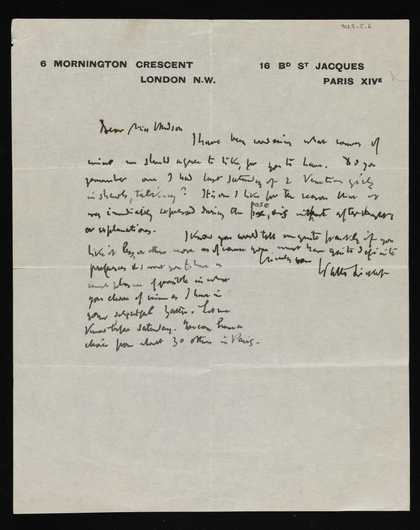 6 MORNINGTON CRESCENT
LONDON N.W.
16 Bᴰ Sᵀ JACQUES
PARIS XIVᴱ
Dear Miss Hudson
I have been wondering what canvas of
mine we should agree to like, for you to have. Do you
remember one I had last Saturday of 2 Venetian girls
in shawls, talking? It is one I like for the reason that it
was immediately expressed during the pose, without afterthoughts
or explanations.
I know you would tell me quite frankly if you
like it less, or other more as of course you must have quite definite
preferences &
Sincerely yours
Walter Sickert
much pleasure if possible in what
you choose of mine as I have in
your delightful
know before Saturday. You can have a
choice from about 30 others in Paris.